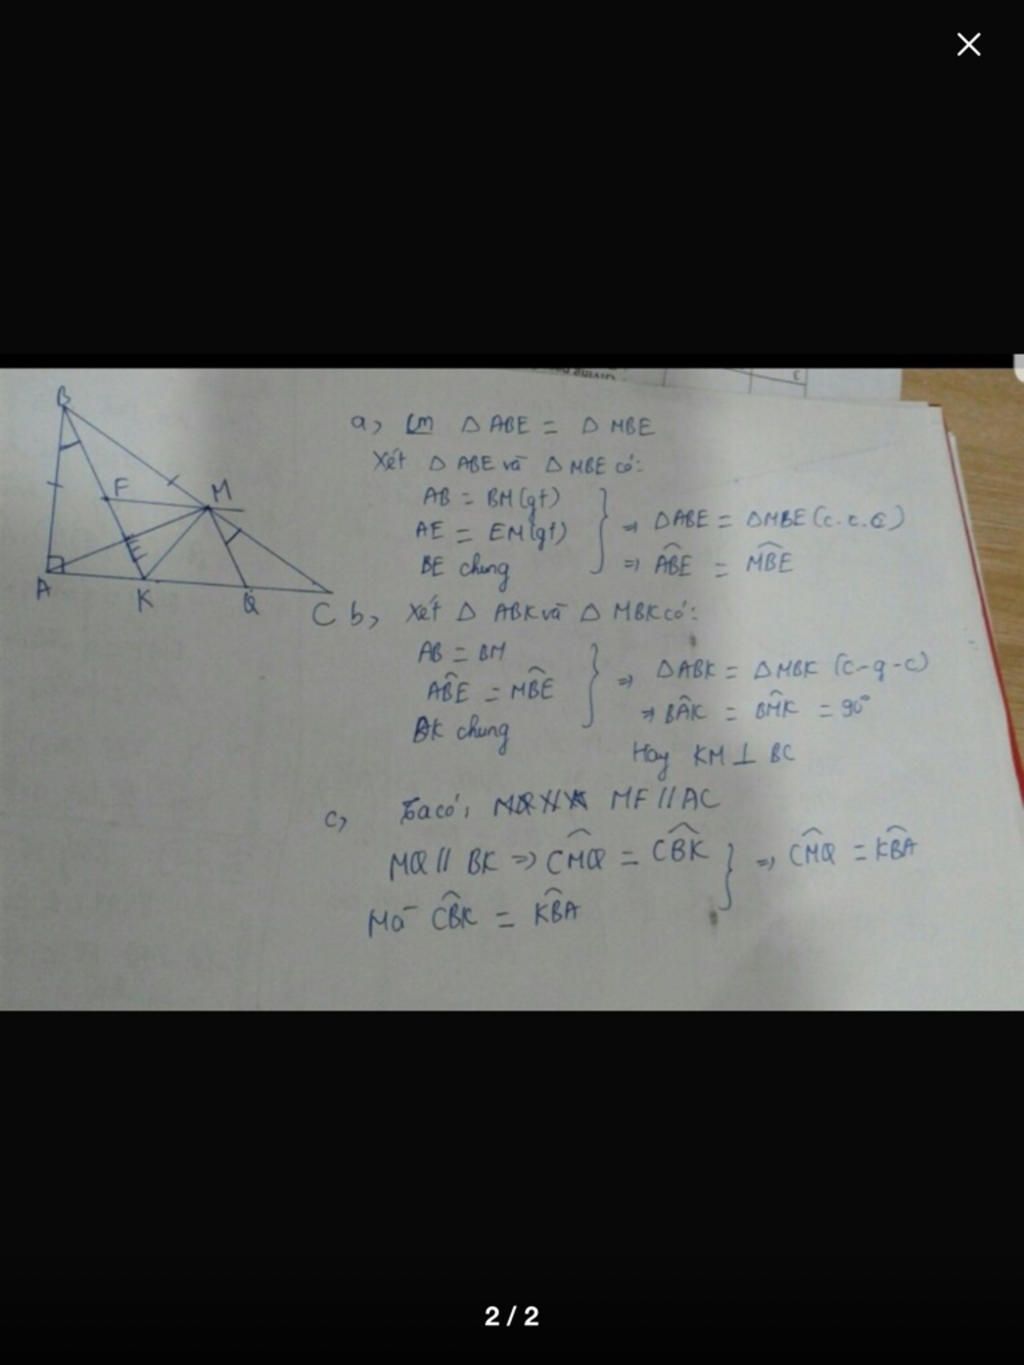 B
F
M
E
A
K
Q
C
a, Cm △ ABE = △ MBE
Xét △ ABE và △ MBE có:
AB = BM (gt)
AE = EM (gt)
BE chung
⇒ △ABE = △MBE (c.c.c)
⇒ ABE = MBE
b, Xét △ ABK và △ MBK có:
AB = BM
ABE = MBE
BK chung
⇒ △ABK = △MBK (c-g-c)
⇒ BAK = BMK = 90°
Hay KM ⊥ BC
c, Ta có, MF // AC
MQ // BK ⇒ CMQ = CBK
Mà CBK = KBA
⇒ CMQ = KBA
2 / 2